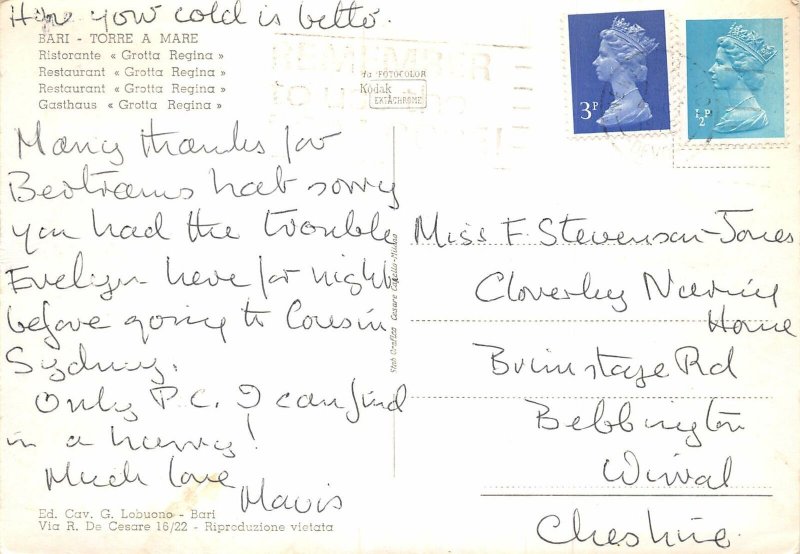 Hope your cold is better.
BARI - TORRE A MARE
Ristorante « Grotta Regina »
Restaurant « Grotta Regina »
Restaurant « Grotta Regina »
Gasthaus « Grotta Regina »
4a FOTOCOLOR
Kodak
EKTACHROME
REMEMBER
3P
½P
Many thanks for
Bertrams hat sorry
you had the trouble
Evelyn here for night
before going to Cousin
Sydney.
Only P.C. I can find
in a hurry!
Much love
Mavis
Ed. Cav. G. Lobuono - Bari
Via R. De Cesare 16/22 - Riproduzione vietata
Stab Grafico Cesare Capello - Milano
Miss F. Stevenson-Jones
Cloverley Nursing
Home
Brimstage Rd
Bebbington
Wirral
Cheshire.